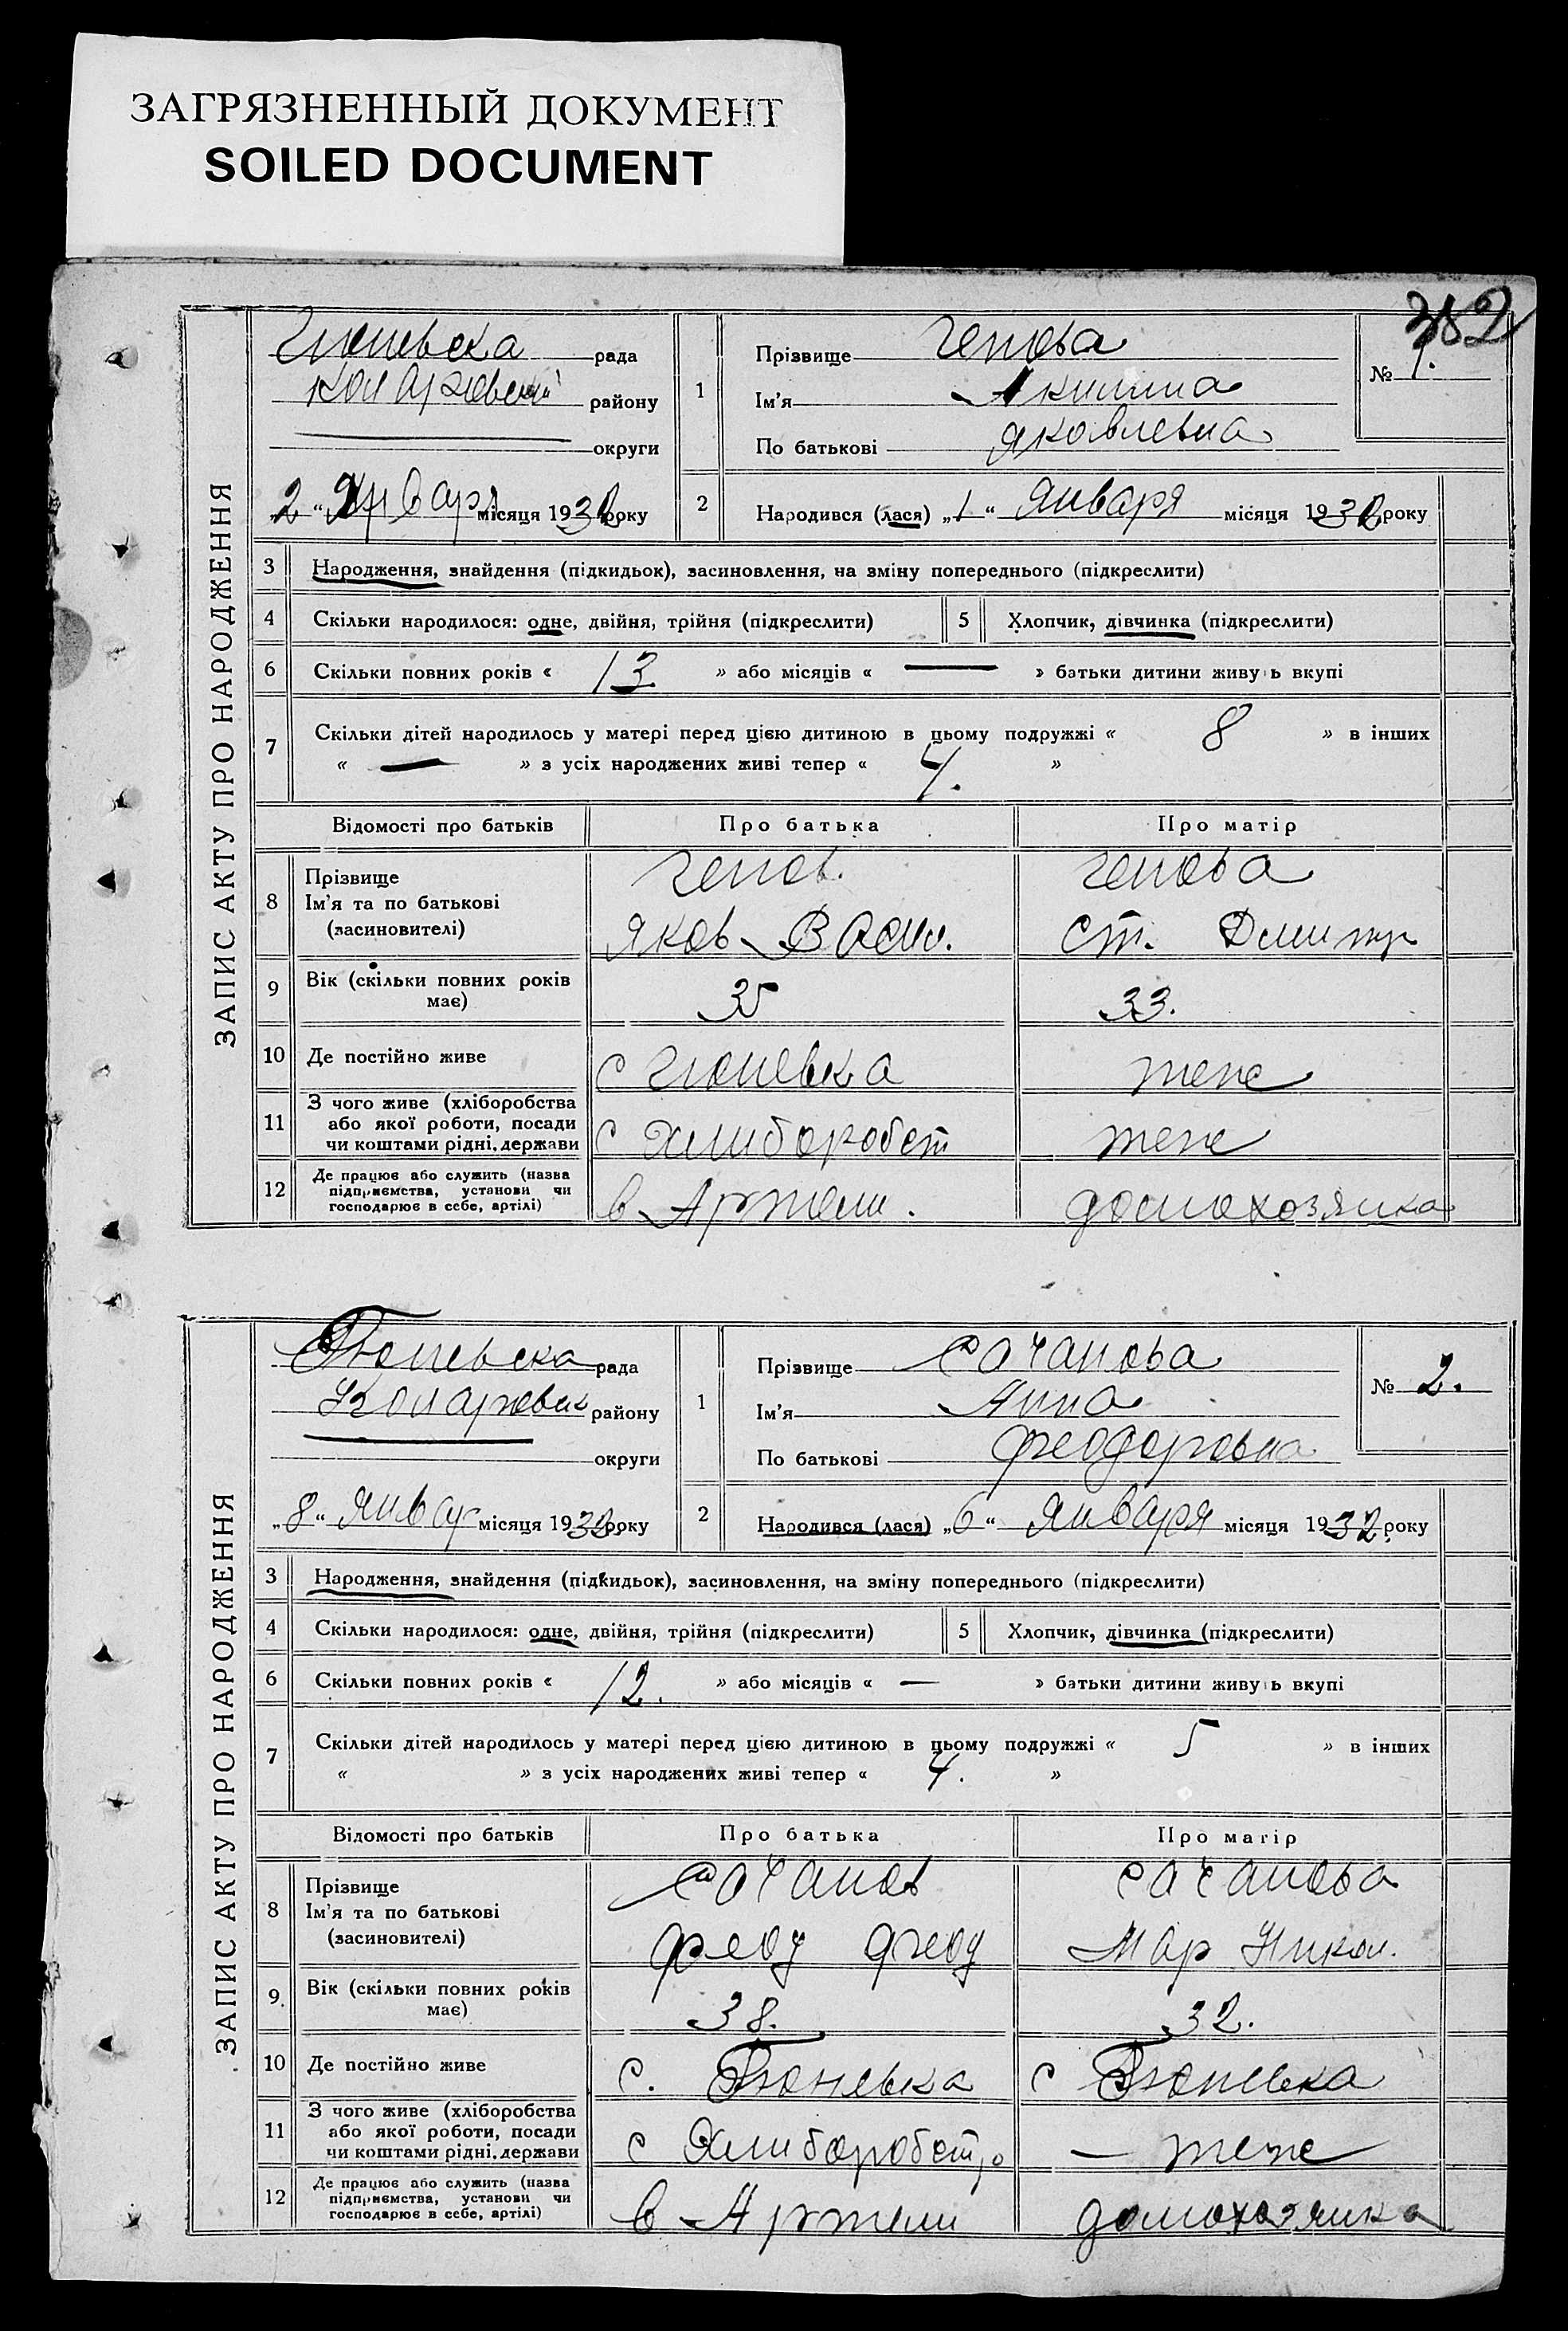 ЗАГРЯЗНЕННЫЙ ДОКУМЕНТ
SOILED DOCUMENT
382
ЗАПИС АКТУ ПРО НАРОДЖЕННЯ
Гюневска рада
Коларовский району
округи
„2“ Января місяця 1932 року
1
Прізвище Генова
Ім'я Акилина
По батькові Яковлевна
№ 1.
2
Народився (лася) „1“ Января місяця 1932 року
3 Народження, знайдення (підкидьок), засиновлення, на зміну попереднього (підкреслити)
4 Скільки народилося: одне, двійня, трійня (підкреслити)
5 Хлопчик, дівчинка (підкреслити)
6 Скільки повних років « 13 » або місяців « — » батьки дитини живуть вкупі
7 Скільки дітей народилось у матері перед цією дитиною в цьому подружжі « 8 » в інших
« — » з усіх народжених живі тепер « 4. »
Відомості про батьків Про батька Про матір
8 Прізвище
Ім'я та по батькові
(засиновителі)
Генов.
Яков Васил.
Генова
Ст. Дмитр
9 Вік (скільки повних років
має)
35
33.
10 Де постійно живе с Гюневка теже
11 З чого живе (хліборобства
або якої роботи, посади
чи коштами рідні, держави
с Хлиборобст
теже
12 Де працює або служить (назва
підприємства, установи чи
господарює в себе, артілі)
в Артели.
домохозяйка
ЗАПИС АКТУ ПРО НАРОДЖЕННЯ
Гюневска рада
Коларовск району
округи
„8“ Январ місяця 1932 року
1
Прізвище Сачанова
Ім'я Анна
По батькові Феодоровна
№ 2.
2
Народився (лася) „6“ Января місяця 1932 року
3 Народження, знайдення (підкидьок), засиновлення, на зміну попереднього (підкреслити)
4 Скільки народилося: одне, двійня, трійня (підкреслити)
5 Хлопчик, дівчинка (підкреслити)
6 Скільки повних років « 12. » або місяців « — » батьки дитини живуть вкупі
7 Скільки дітей народилось у матері перед цією дитиною в цьому подружжі « 5 » в інших
« » з усіх народжених живі тепер « 4. »
Відомості про батьків Про батька Про матір
8 Прізвище
Ім'я та по батькові
(засиновителі)
Сачанов
Феод Феод
Сачанова
Мар Никол.
9. Вік (скільки повних років
має)
38.
32.
10 Де постійно живе с. Гюневка с Гюневка
11 З чого живе (хліборобства
або якої роботи, посади
чи коштами рідні, держави
с Хлиборобст,о
— теже
12 Де працює або служить (назва
підприємства, установи чи
господарює в себе, артілі)
в Артели
домохозяйка